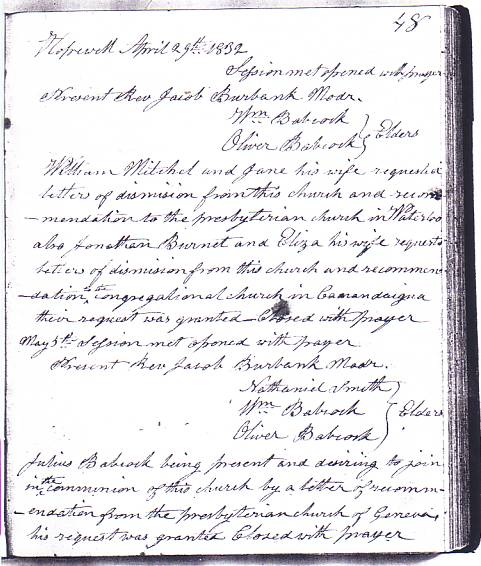 48
Hopewell April 29th 1832
Session met opened with prayer
Present Rev Jacob Burbank Modr.
Wm Babcock
Oliver Babcock } Elders
William Mitchel and Jane his wife requested
letters of dismision from this church and recom
-mendation to the presbyterian church in Waterloo
also Jonathan Burnet and Eliza his wife requests
letters of dismision from this church and recommen
-dation to the congregational church in Canandaigua
their request was granted – Closed with prayer
May 5th Session met opened with prayer
Present Rev Jacob Burbank Modr.
Nathaniel Smith
Wm Babcock } Elders
Oliver Babcock
Julius Babcock being present and desiring to join
in the communion of this church by a letter of recomm-
-endation from the presbyterian church of Geneva
his request was granted Closed with prayer